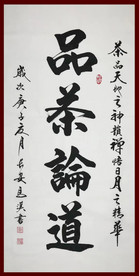 茶品天地之神韻禪悟日月之精華
品茶論道
歲次庚子夏月長安書